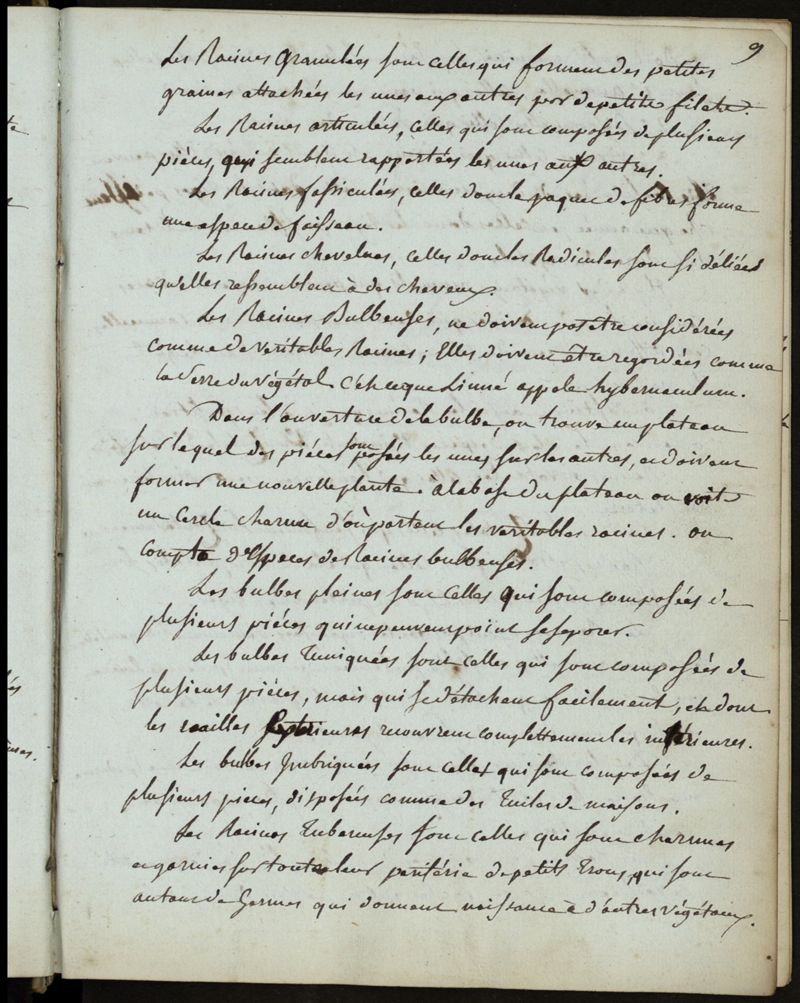 9
Les Racines Granulées sont celles qui forment des petites
graines attachées les unes aux autres par de petits filets.
Les Racines articulées, celles qui sont composés de plusieurs
pièces, qui semblent rapportées les unes aux autres.
Les Racines fassiculées, celles dont le paquet de fibres forme
une espece de faisseau.
Les Racines chevelues, celles dont les Radicules sont si déliées
qu'elles ressemblent à des cheveux.
Les Racines Bulbeuses, ne doivent pas être considérées
comme de veritables Racines; Elles doivent être regardées comme
la Serre du végétal C'est ce que Linné appele hybernaculum.
Dans l'ouverture de la bulbe, on trouve un plateau
sur lequel des piéces sont posées les unes sur les autres, et doivent
former une nouvelle plante. à la base du plateau on voit
un Cercle charnu d'où partent les veritables racines. on
Compte 3 Especes de Racines bulbeuses.
Les bulbes pleines sont Celles qui sont composées de
plusieurs piéces qui ne peuvent point se séparer.
Les bulbes Tuniquées sont celles qui sont composées de
plusieurs piéces, mais qui se détachent facilement, et dont
les ecailles Exterieures recouvrent complettement les intérieures.
Les bulbes Imbriquées sont celles qui sont composées de
plusieurs pieces, disposées comme des Tuiles de maisons.
Les Racines Tubereuses sont celles qui sont charnues
et garnies sur toute leur periférie de petits Trous, qui sont
autant de Germes qui donnent naissance à d'autres végétaux.